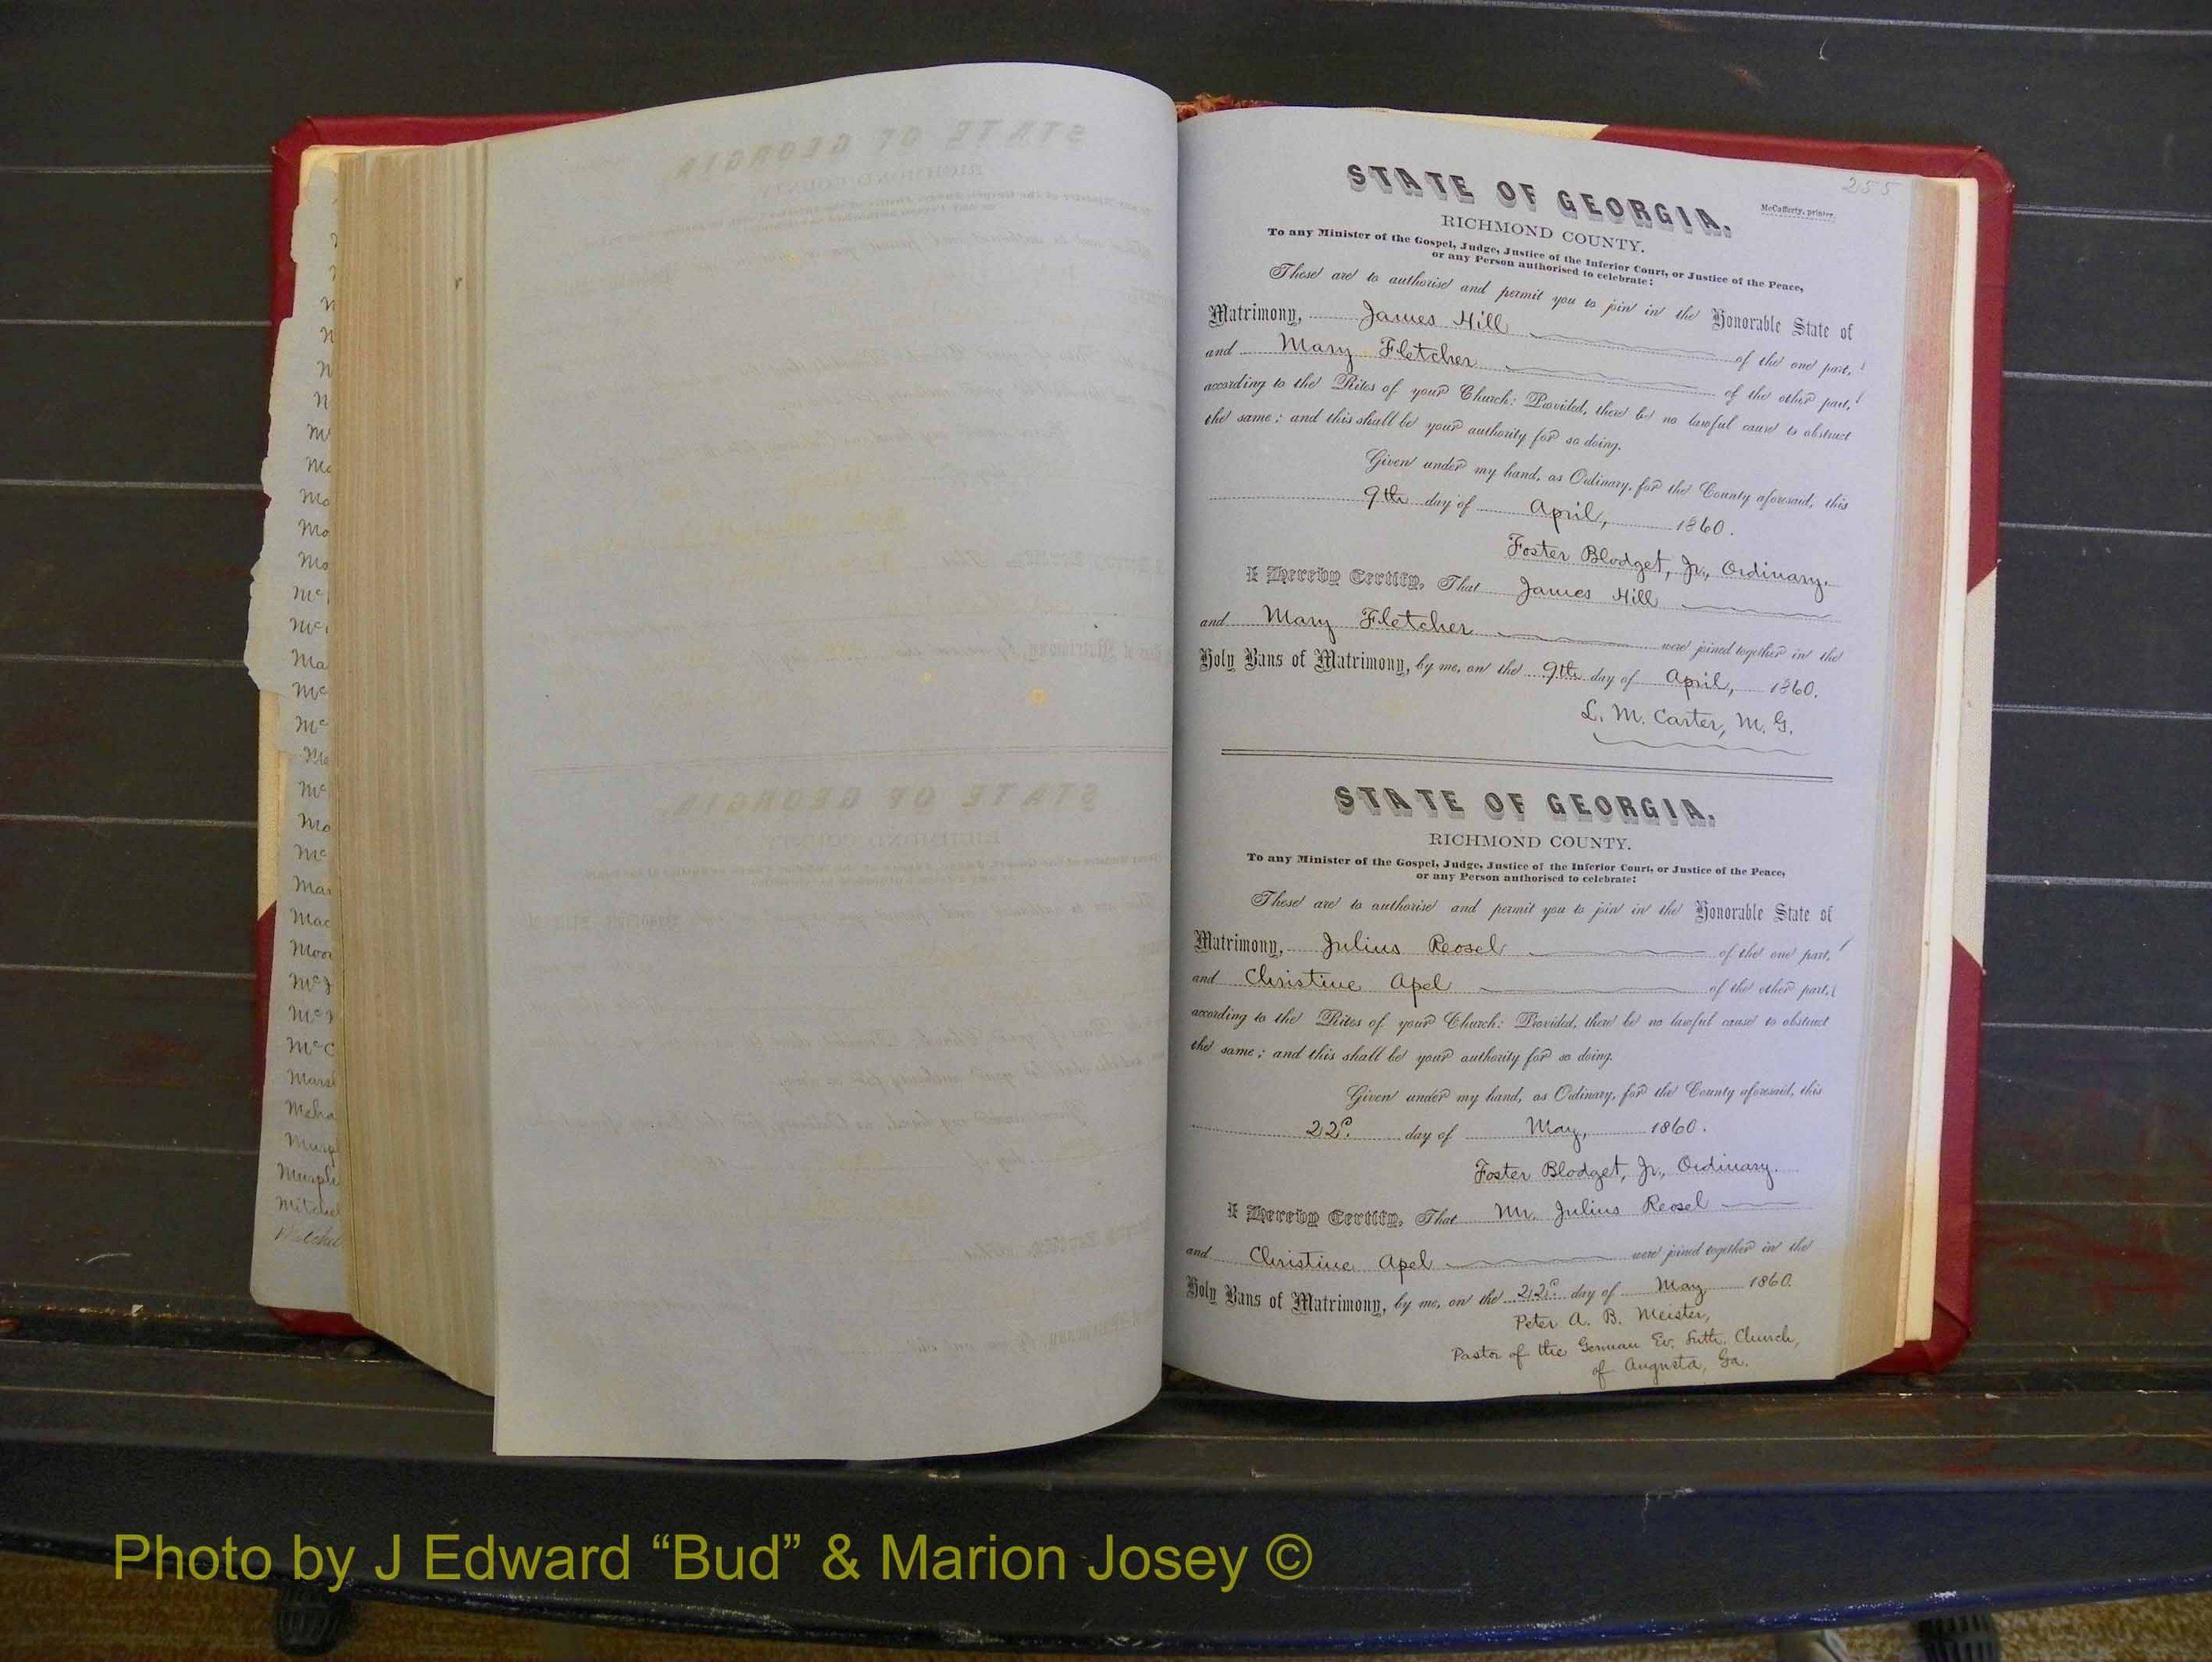 255
STATE OF GEORGIA.
McCafferty, printer.
RICHMOND COUNTY.
To any Minister of the Gospel, Judge, Justice of the Inferior Court, or Justice of the Peace,
or any Person authorised to celebrate:
These are to authorise and permit you to join in the Honorable State of
Matrimony, James Hill of the one part,
and Mary Fletcher of the other part,
according to the Rites of your Church: Provided, there be no lawful cause to obstruct
the same; and this shall be your authority for so doing.
Given under my hand, as Ordinary, for the County aforesaid, this
9th day of April, 1860.
Foster Blodget, Jr., Ordinary.
I Hereby Certify, That James Hill
and Mary Fletcher were joined together in the
Holy Bans of Matrimony, by me, on the 9th day of April, 1860.
L. M. Carter, M. G.
STATE OF GEORGIA.
RICHMOND COUNTY.
To any Minister of the Gospel, Judge, Justice of the Inferior Court, or Justice of the Peace,
or any Person authorised to celebrate:
These are to authorise and permit you to join in the Honorable State of
Matrimony, Julius Reosel of the one part,
and Christine Apel of the other part,
according to the Rites of your Church: Provided, there be no lawful cause to obstruct
the same; and this shall be your authority for so doing.
Given under my hand, as Ordinary, for the County aforesaid, this
22d. day of May, 1860.
Foster Blodget, Jr., Ordinary.
I Hereby Certify, That Mr. Julius Reosel
and Christine Apel were joined together in the
Holy Bans of Matrimony, by me, on the 22d. day of May 1860.
Peter A. B. Meister,
Pastor of the German Ev. Luth. Church,
of Augusta, Ga.
Photo by J Edward “Bud” & Marion Josey ©